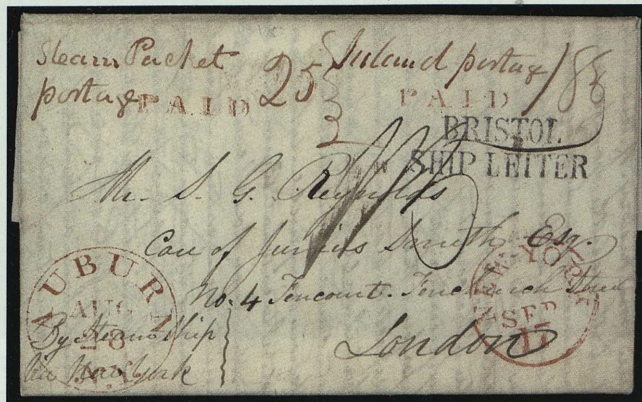 Steam Packet
postage 25
PAID
Inland postage 18¾
PAID
BRISTOL
SHIP LETTER
Mr. S. G. Reynolds
Care of Junius Smith Esq.
No. 4 Fencourt. Fenchurch Street
London
AUBURN
AUG
28
N.Y.
By Steam Ship
via New York
NEW-YORK
SEP
1